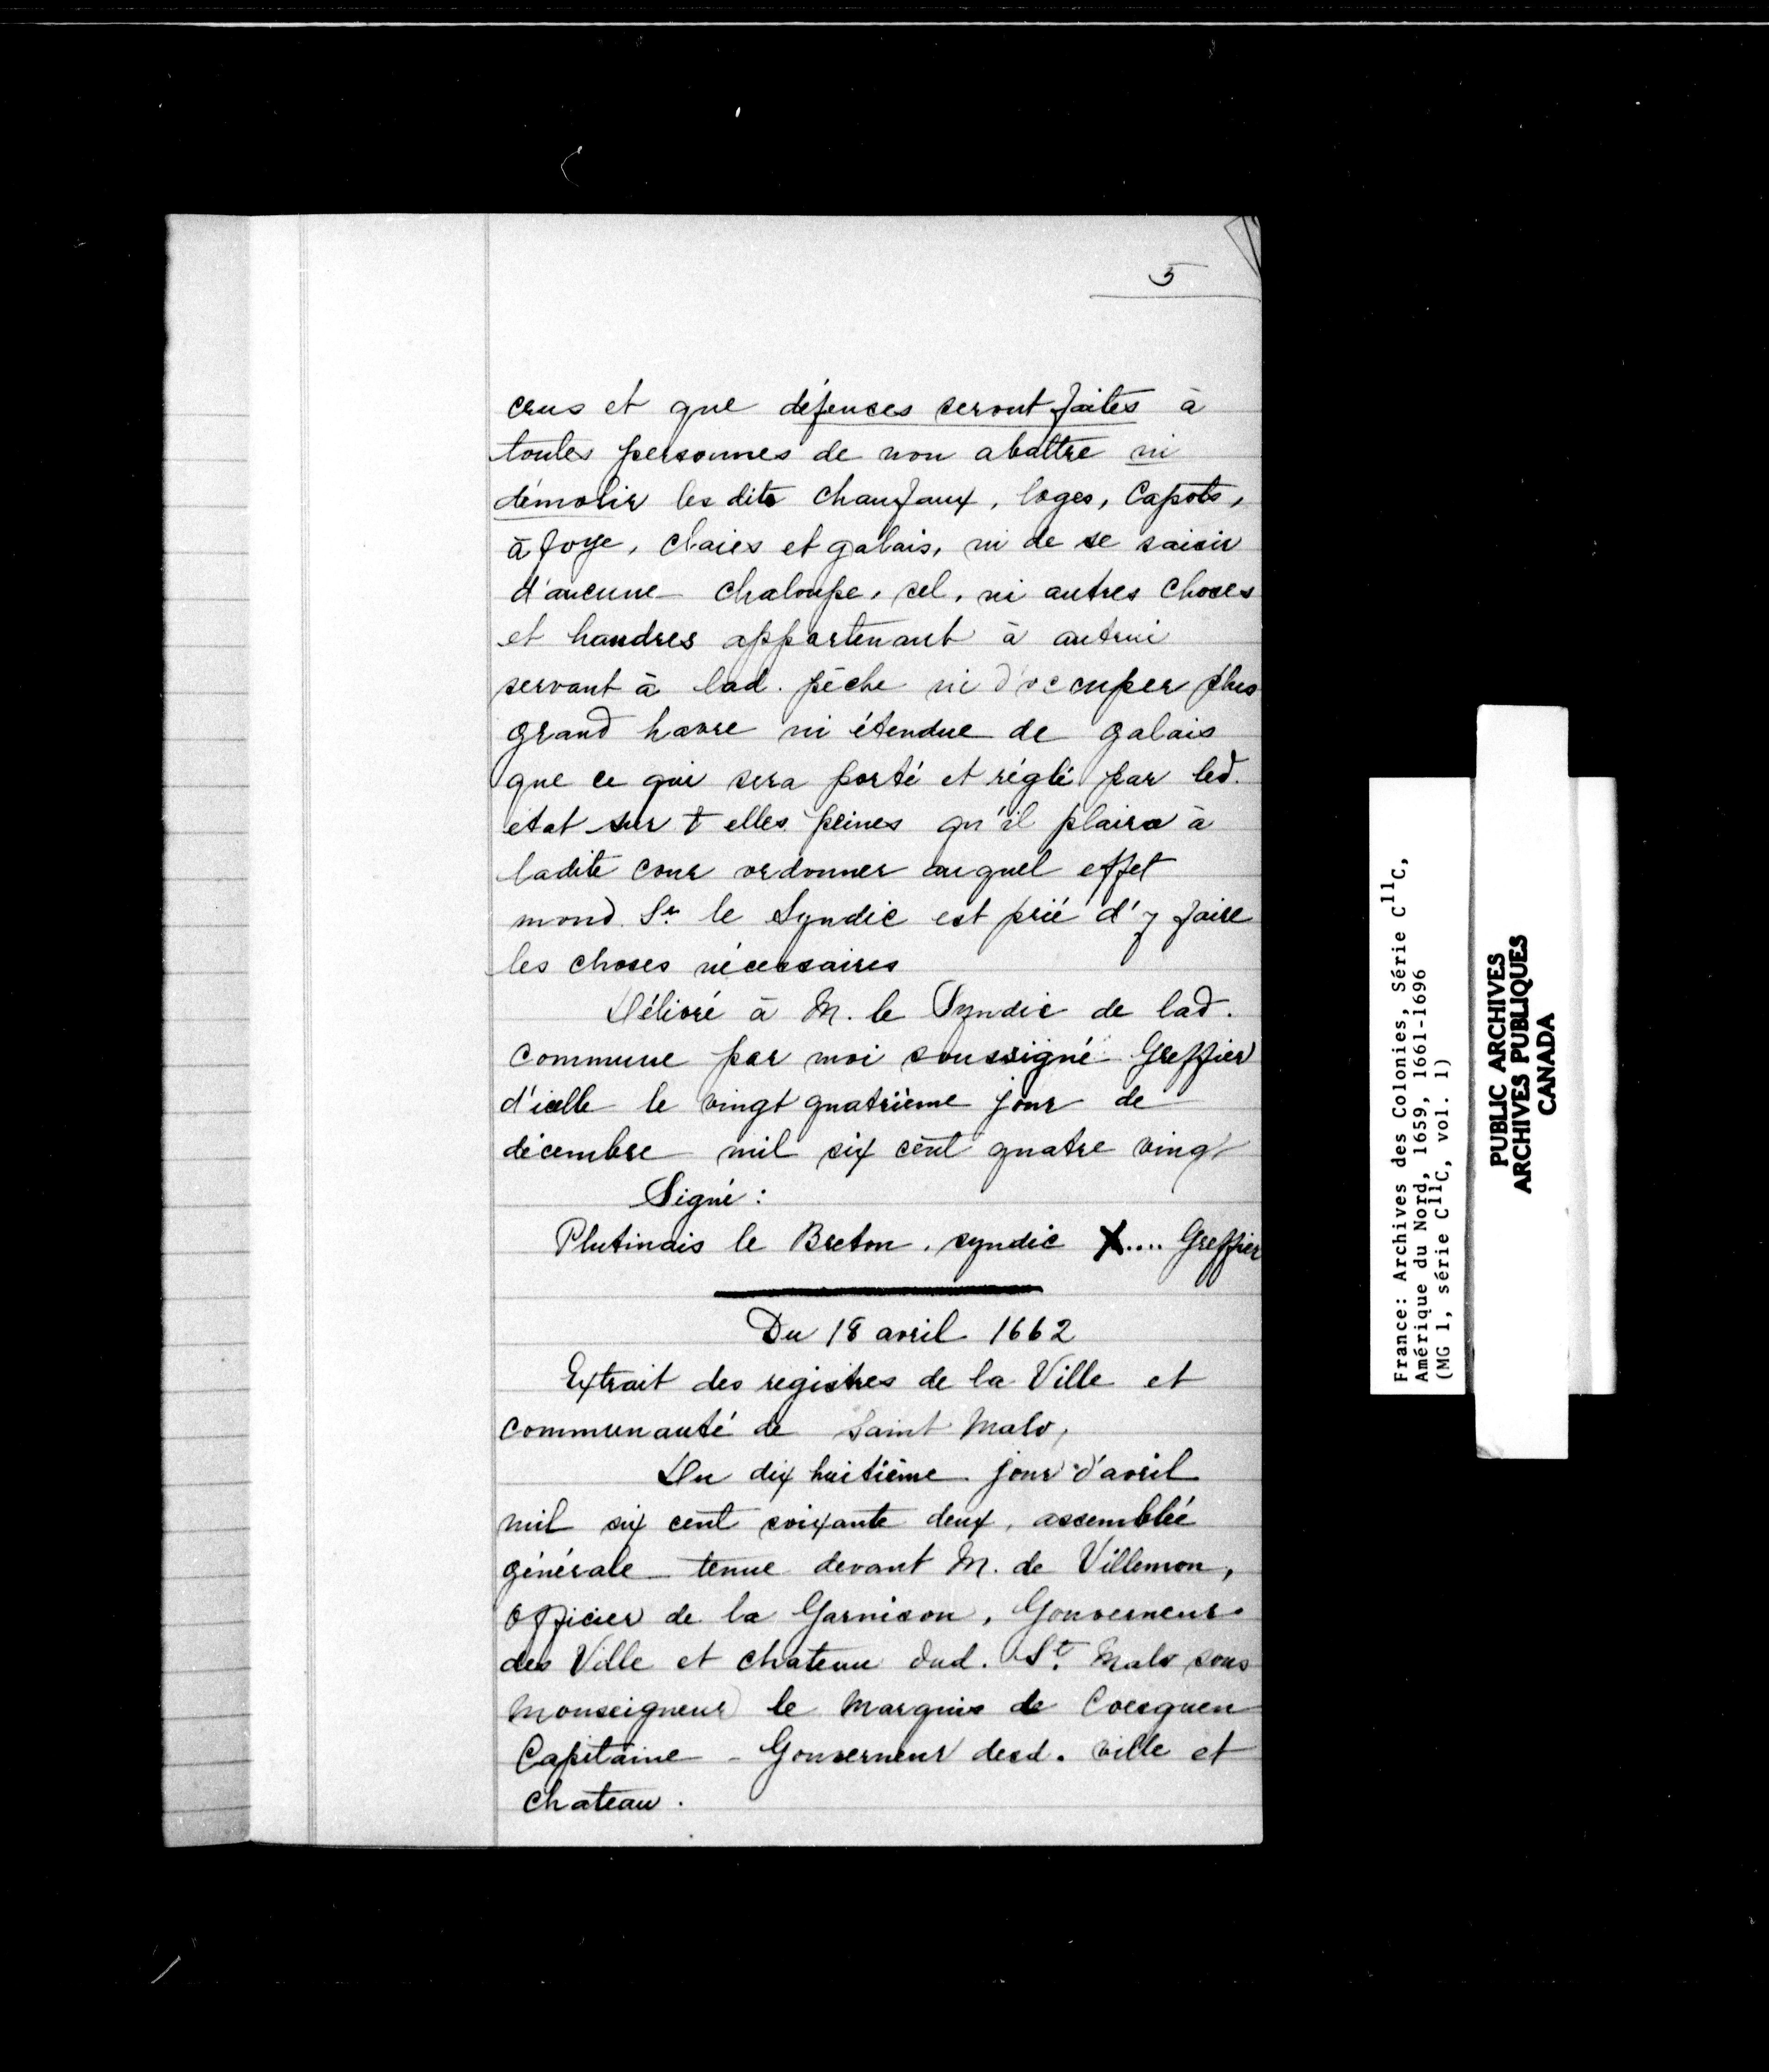 5
ceus et que défences seront faites à
toutes personnes de non abattre ni
démolir les dits chaufaux, loges, Capots,
à foye, claies et galais, ni de se saisir
d'aucune chaloupe, sel, ni autres choses
et handres appartenant à autrui
servant à lad. pêche ni d'occuper plus
grand havre ni étendue de galais
que ce qui sera porté et réglé par led.
état sur t elles peines qu'il plaira à
ladite cour ordonner auquel effet
mond. Sr le Syndic est prié d'y faire
les choses nécessaires
Délivré à M. le Syndic de lad.
commune par moi soussigné Greffier
d'icelle le vingt quatrième jour de
décembre mil six cent quatre vingt
Signé:
Plutinais le Breton, syndic X.... Greffier
Du 18 avril 1662
Extrait des registres de la Ville et
communauté de Saint Malo,
Du dix huitième jour d'avril
mil six cent soixante deux, assemblée
générale tenue devant M. de Villemon,
Officier de la Garnison, Gouverneur
des Ville et chateau dud. St. Malo sous
Monseigneur le Marquis de Coesquen
Capitaine - Gouverneur desd. ville et
chateau.
France: Archives des Colonies, Série C11C,
Amérique du Nord, 1659, 1661-1696
(MG 1, série C11C, vol. 1)
PUBLIC ARCHIVES
ARCHIVES PUBLIQUES
CANADA